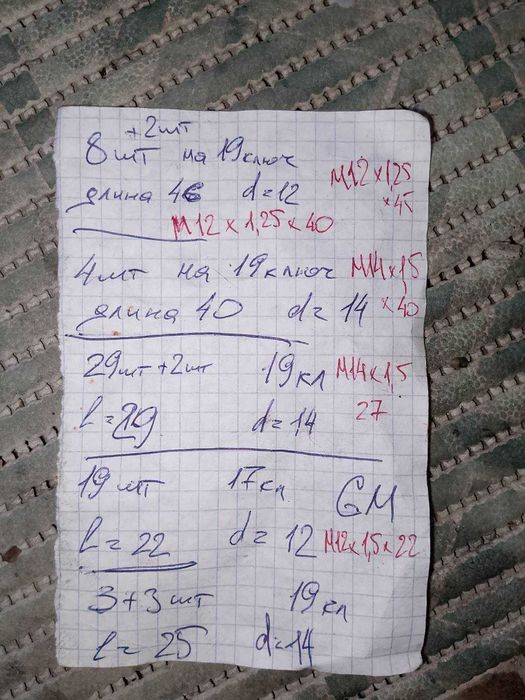 +2шт
8шт на 19ключ
M12×1,25
×45
длина 46 d=12
M12×1,25×40
4шт на 19ключ M14×1,5
длина 40 d=14 ×40
29шт+2шт 19кл M14×1,5
l=29 d=14 27
19шт 17кл GM
l=22 d=12 M12×1,5×22
3+3шт 19кл
l=25 d=14